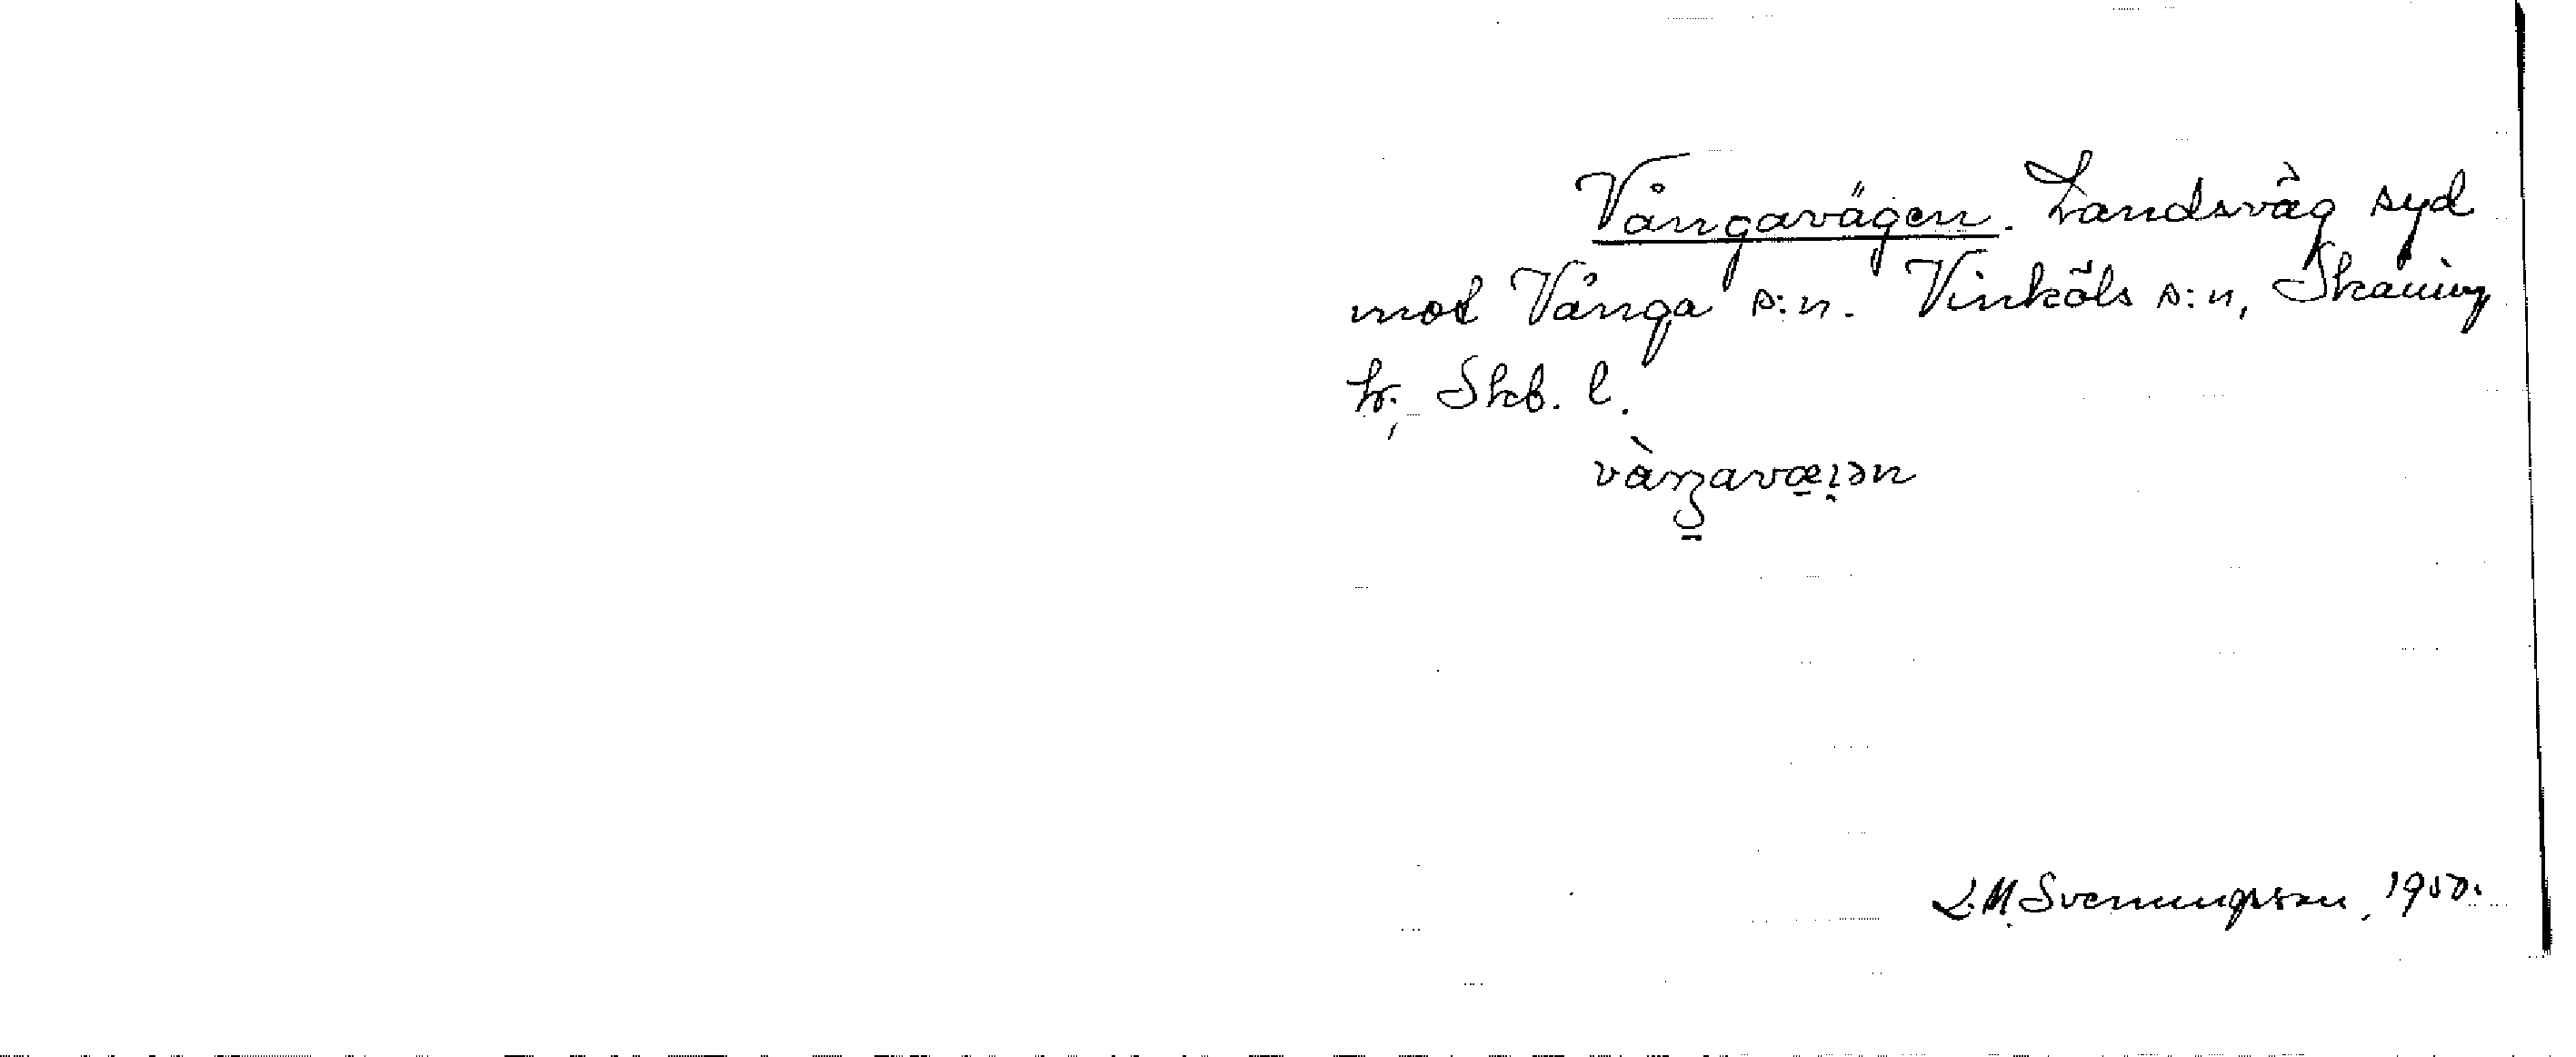 Vångavägen. Landsväg syd
mot Vånga s:n. Vinköls s:n, Skåning
hr, Skb. l.
L.M. Svenungsson, 1950.